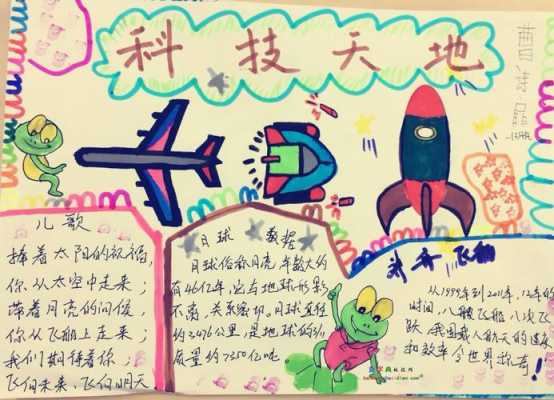 科技天地
儿歌
捧着太阳的祝福，
你从太空中走来；
带着月亮的问候，
你从飞船上走来；
我们期待着你；
飞向未来，飞向明天
月球 数据
月球俗称月亮 年龄大约
有46亿年，它与地球形影
不离，关系密切，月球直径
约3476公里，是地球的3/11
质量约7350亿吨
神舟飞船
从1999年到2011年，12年的
时间，八艘飞船，八次飞
跃，我国载人航天的速度
和效率令世界称奇！